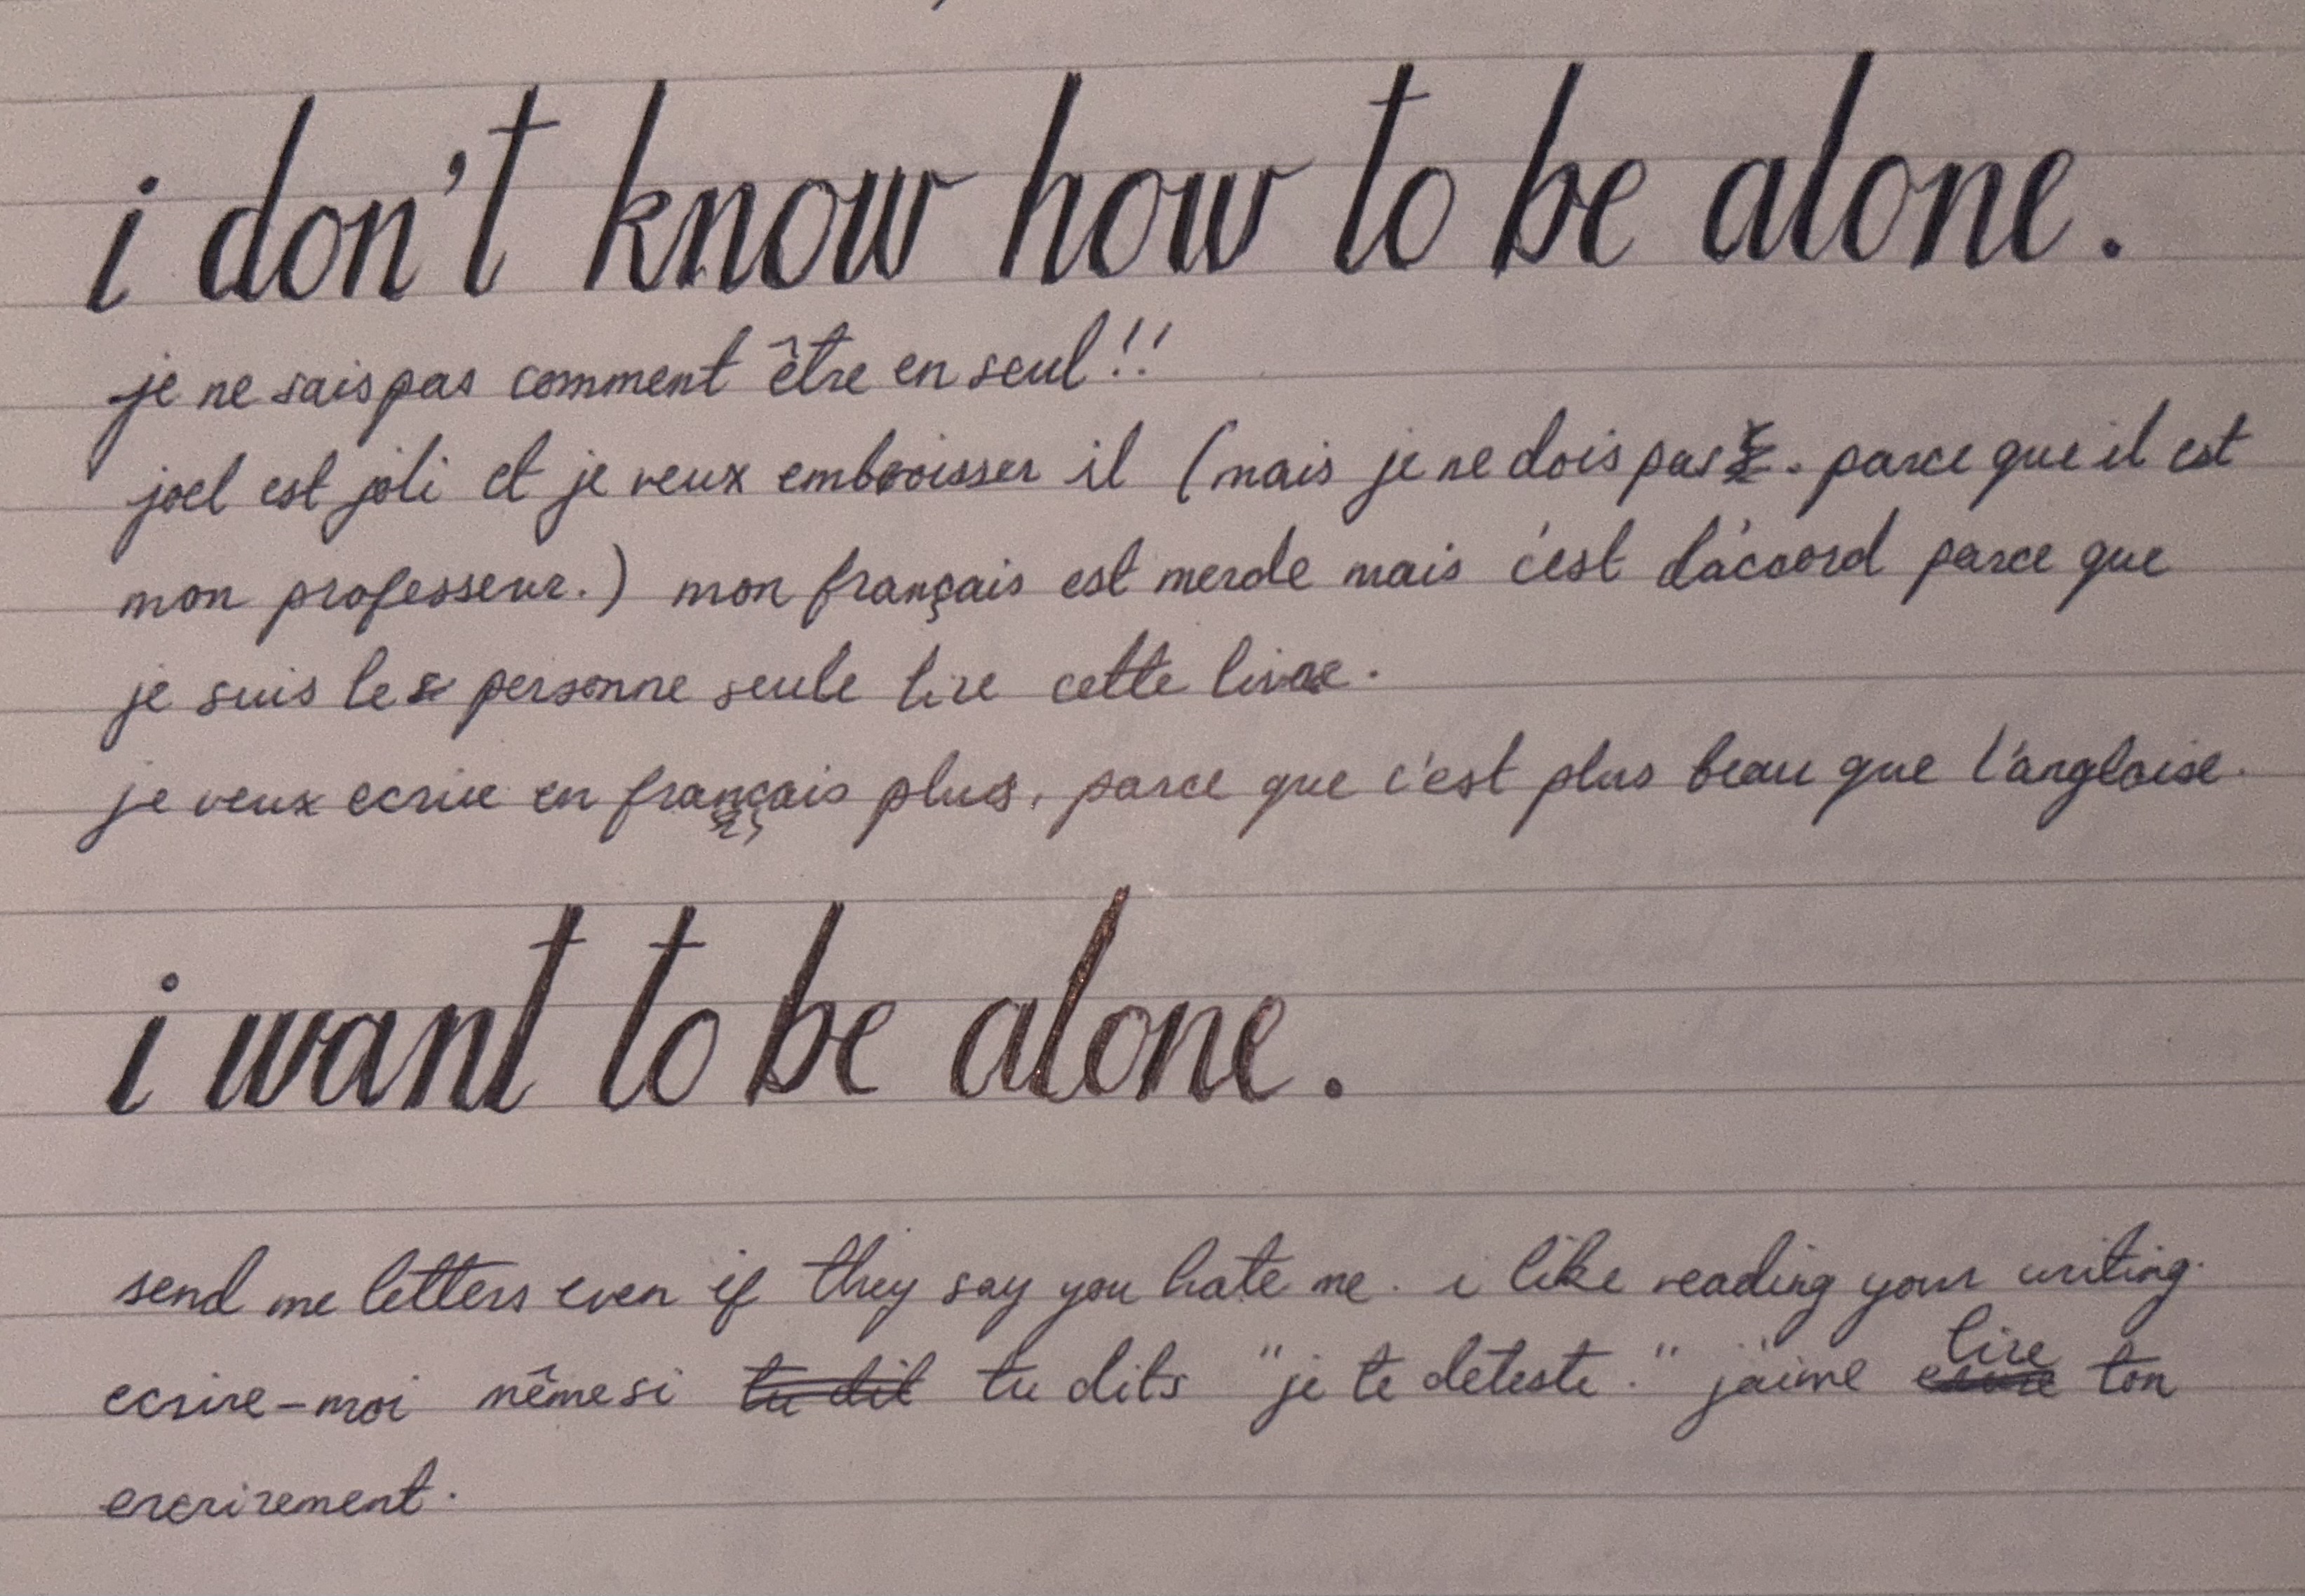 i don't know how to be alone.
je ne sais pas comment être en seul!!
joel est joli et je veux embroisser il (mais je ne dois pas. parce que il est
mon professeur.) mon français est merde mais c'est d'accord parce que
je suis le personne seule lire cette livre.
je veux ecrire en français plus, parce que c'est plus beau que l'anglaise.
i want to be alone.
send me letters even if they say you hate me. i like reading your writing.
ecrire-moi même si tu dit tu dits "je te deteste." j'aime lire ton
ercrirement.